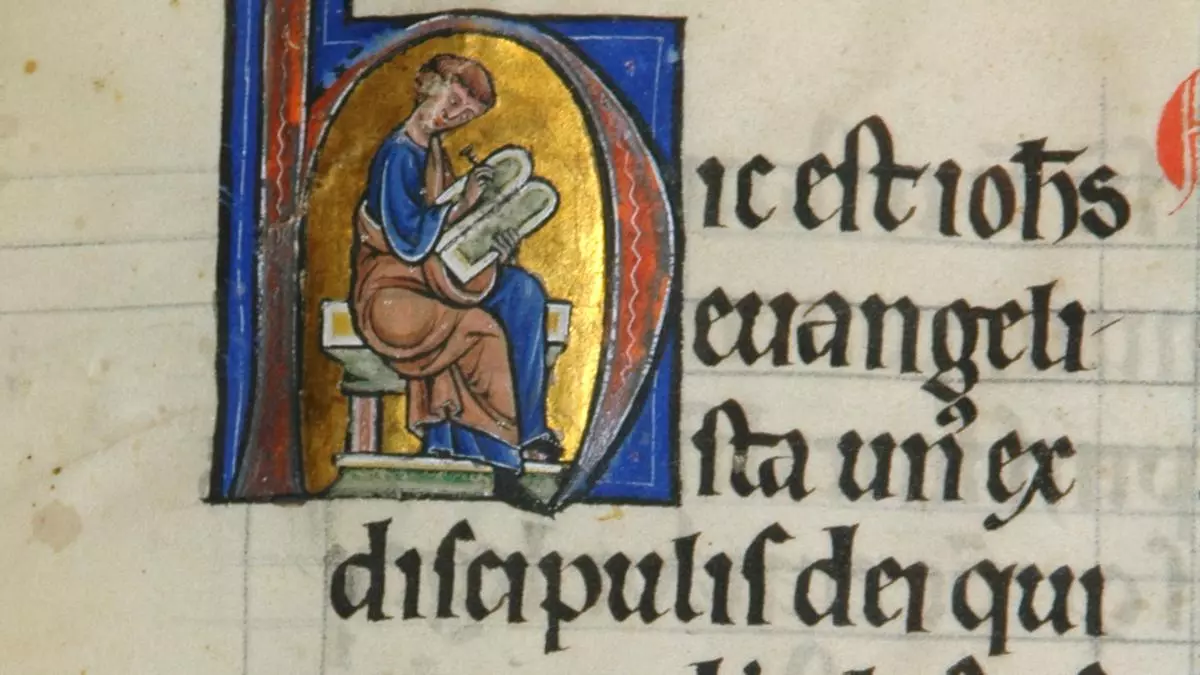 hic eſt ioħs
euangeli-
ſta unꝰ ex
diſcipuliſ dei qui